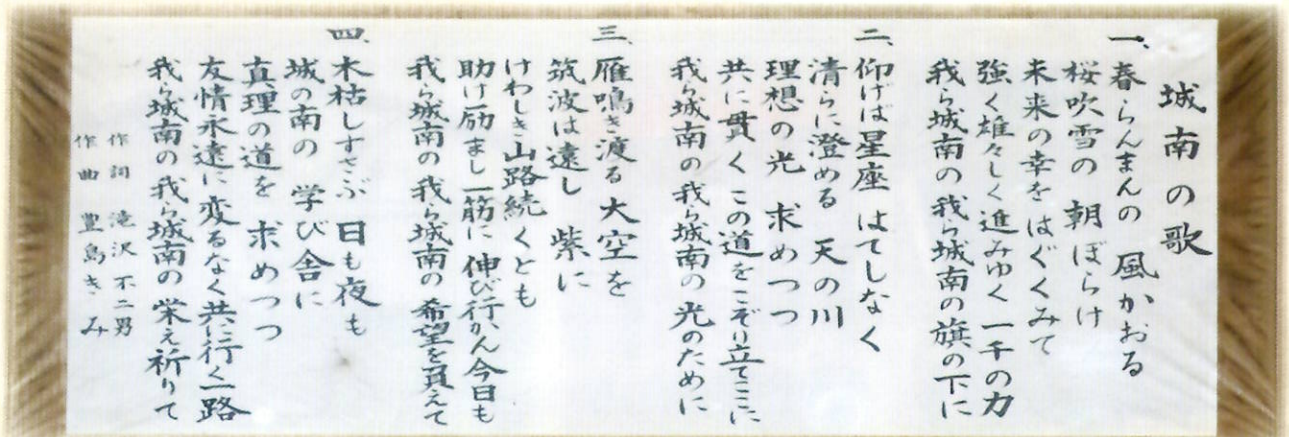 城南の歌
一、春らんまんの 風かおる
桜吹雪の 朝ぼらけ
未来の幸を はぐくみて
強く雄々しく進みゆく 一千の力
我ら城南の我ら城南の旗の下に
二、仰げば星座 はてしなく
清らに澄める 天の川
理想の光 求めつつ
共に貫く この道をこぞり立てここに
我ら城南の我ら城南の 光のために
三、雁鳴き渡る大空を
筑波は遠し 紫に
けわしき山路続くとも
助け励まし一筋に 伸び行かん今日も
我ら城南の 我ら城南の 希望を負えて
四、木枯しすさぶ 日も夜も
城の南の 学び舎に
真理の道を 求めつつ
友情永遠に変るなく 共に行く一路
我ら城南の 我ら城南の 栄え祈りて
作詞 滝沢不二男
作曲 豊島きみ